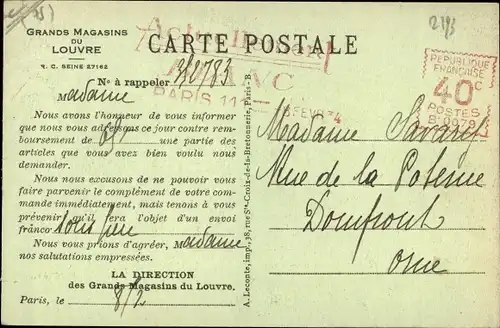 (75)
2193
GRANDS MAGASINS
DU
LOUVRE
R. C. SEINE 27162
CARTE POSTALE
Nº à rappeler 3/2783
PARIS
REPUBLIQUE
FRANÇAISE
40c
POSTES
B·0079
Madame
Nous avons l'honneur de vous informer
que nous vous adressons ce jour contre rem-
boursement de une partie des
articles que vous avez bien voulu nous
demander.
Nous nous excusons de ne pouvoir vous
faire parvenir le complément de votre com-
mande immédiatement, mais tenons à vous
prévenir qu'il fera l'objet d'un envoi
franco sous peu
Nous vous prions d'agréer, Madame
nos salutations empressées.
LA DIRECTION
des Grands Magasins du Louvre.
Paris, le 8/2
A. Leconte, impr, 38, rue Ste-Croix-de-la-Bretonnerie, Paris - B.
Madame Savarej
Rue de la Poterne
Domfront
Orne